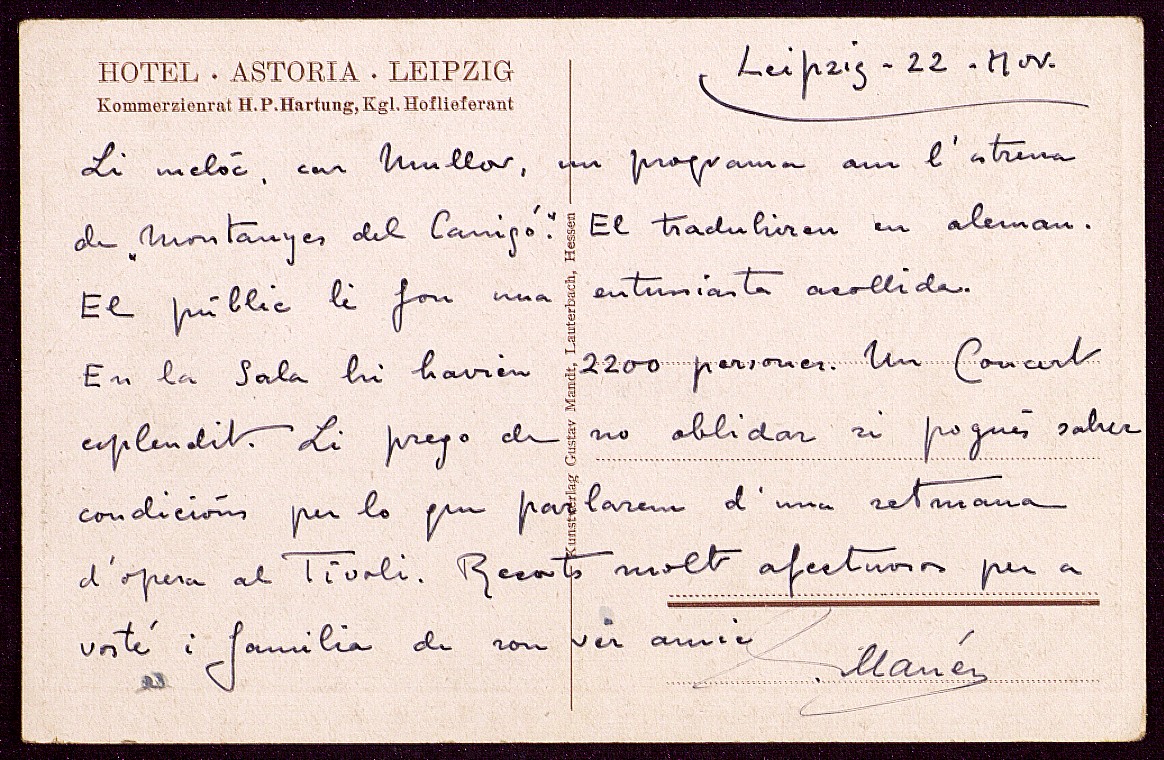 HOTEL · ASTORIA · LEIPZIG
Kommerzienrat H.P.Hartung, Kgl. Hoflieferant
Leipzig - 22 - Nov.
Li incloc, car Mullor, un programa am l'estrena
de „Montanyes del Canigó". El traduhiren en aleman.
El públic li feu una entusiasta acollida.
En la Sala hi havien 2200 persones. Un Concert
esplendit. Li prego de no oblidar si pogués saber
condicións per lo que parlarem d'una setmana
d'opera al Tívoli. Recorts molt afectuosos per a
vosté i familia de son ver amic
Manén
Kunstverlag Gustav Mandt, Lauterbach, Hessen